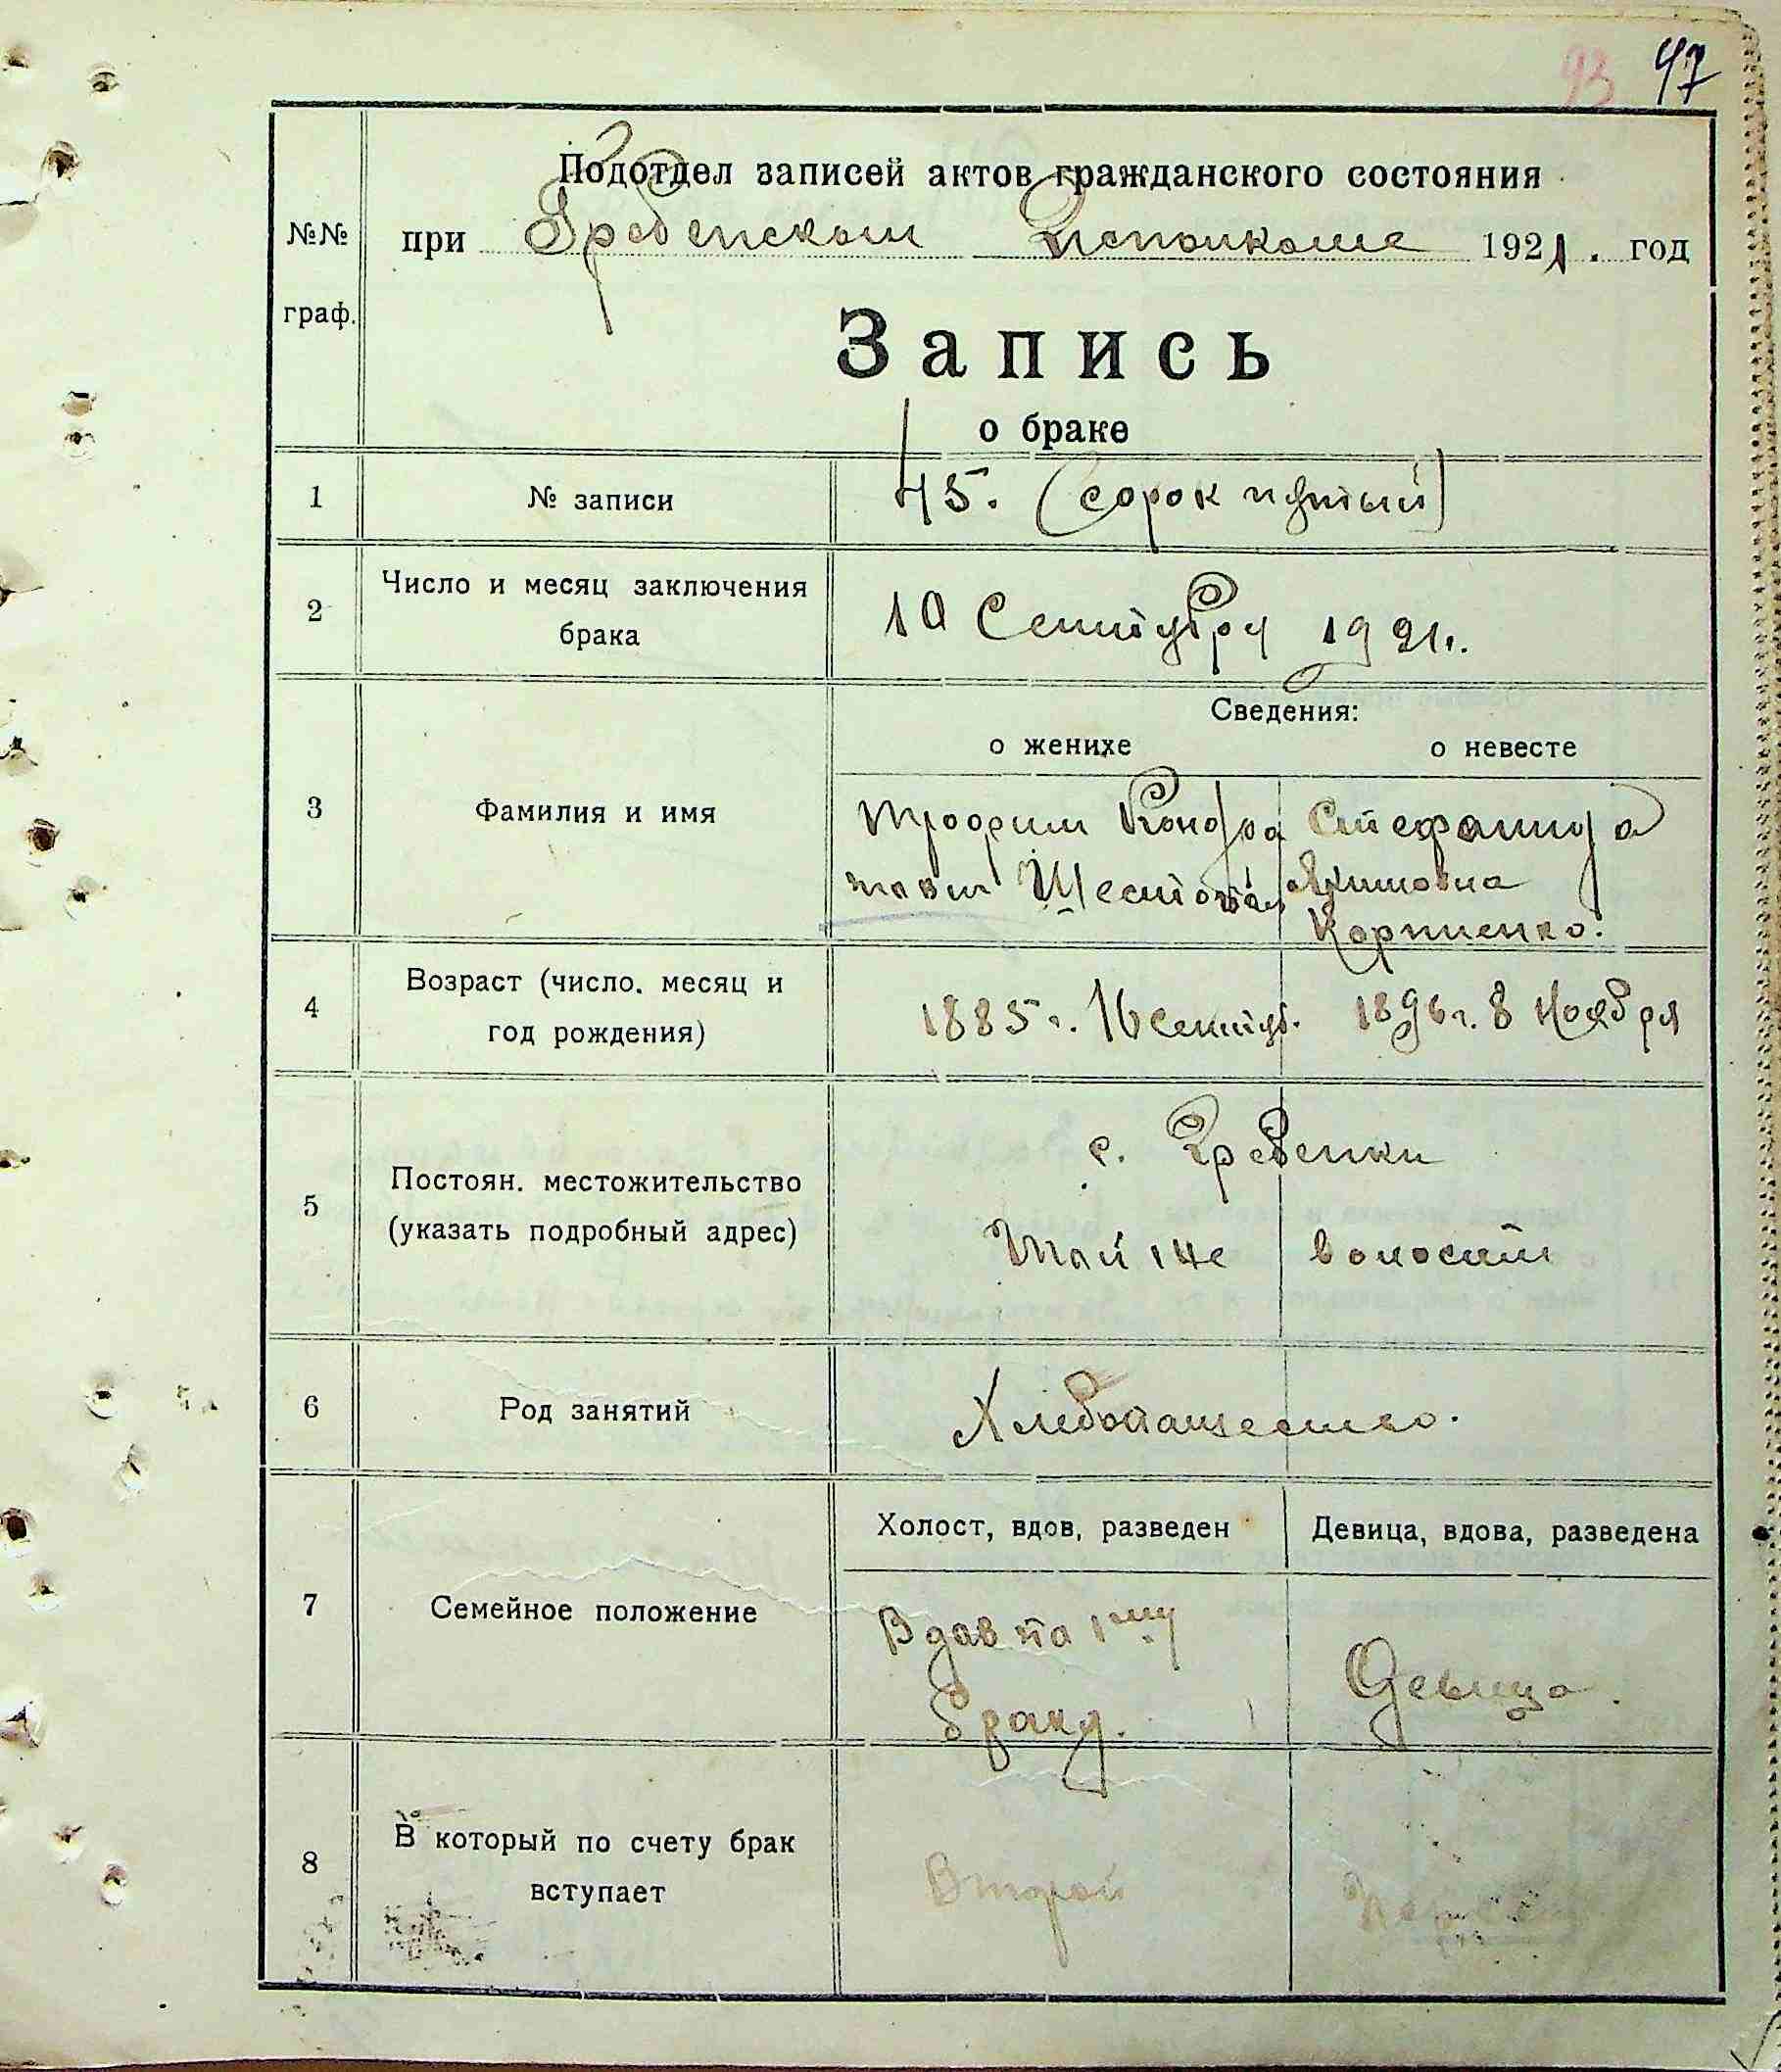 93 47
Подотдел записей актов гражданского состояния
№№ при Гребенском Исполкоме 1921. год
граф.
Запись
о браке
1 № записи 45. (сорок пятый)
2 Число и месяц заключения
брака
10 Сентября 1921г.
Сведения:
о женихе о невесте
3 Фамилия и имя
Трофим Кондра Стефанида
Якимовна
Корниенко.
4 Возраст (число. месяц и
год рождения)
1885 г. 16 сентяб. 1896 г. 8 Ноября
5 Постоян. местожительство
(указать подробный адрес)
с. Гребенки
той же волости
6 Род занятий Хлебопашество.
Холост, вдов, разведен Девица, вдова, разведена
7 Семейное положение
Вдов по 1му
браку.
Девица.
8 В который по счету брак
вступает
Второй Первый